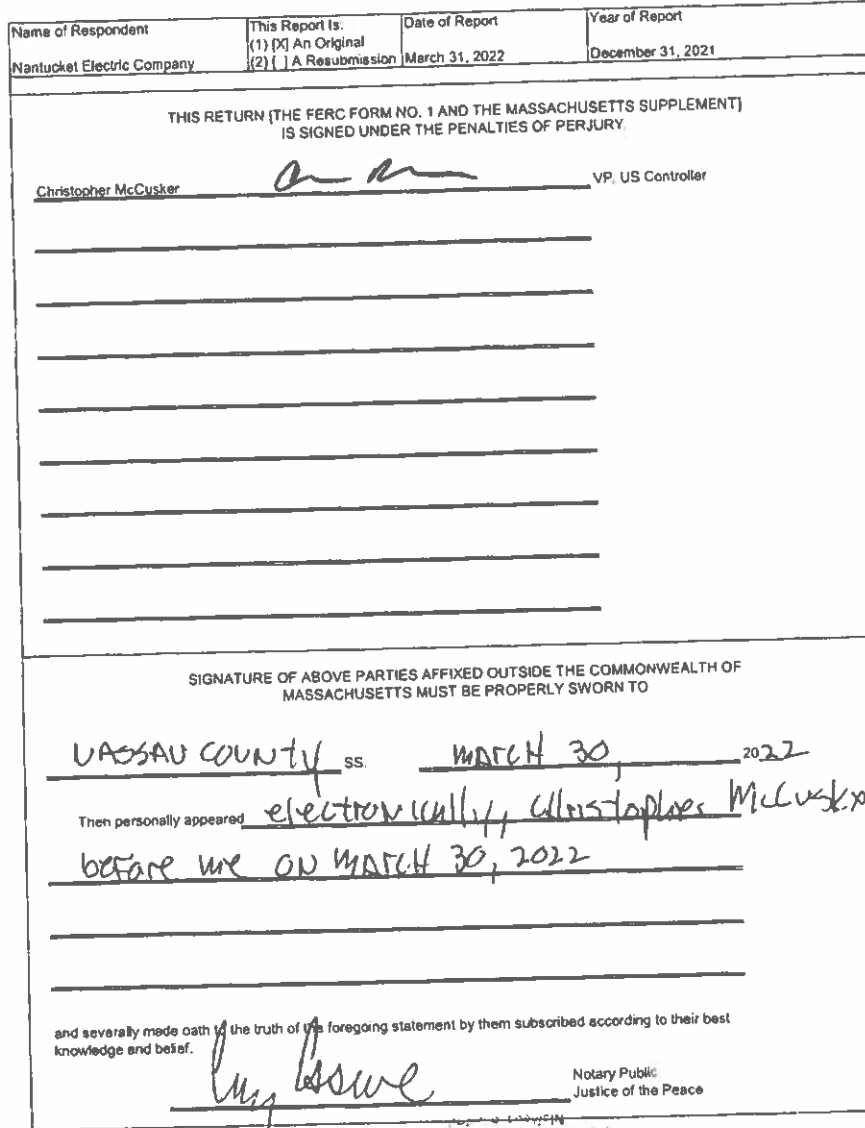 Name of Respondent
Nantucket Electric Company
This Report Is:
(1) [X] An Original
(2) [ ] A Resubmission
Date of Report
March 31, 2022
Year of Report
December 31, 2021
THIS RETURN [THE FERC FORM NO. 1 AND THE MASSACHUSETTS SUPPLEMENT]
IS SIGNED UNDER THE PENALTIES OF PERJURY
Christopher McCusker VP, US Controller
SIGNATURE OF ABOVE PARTIES AFFIXED OUTSIDE THE COMMONWEALTH OF
MASSACHUSETTS MUST BE PROPERLY SWORN TO
NASSAU COUNTY SS. MARCH 30, 2022
Then personally appeared electronically, Christopher McCusker
before me ON MARCH 30, 2022
and severally made oath to the truth of the foregoing statement by them subscribed according to their best
knowledge and belief.
Notary Public
Justice of the Peace